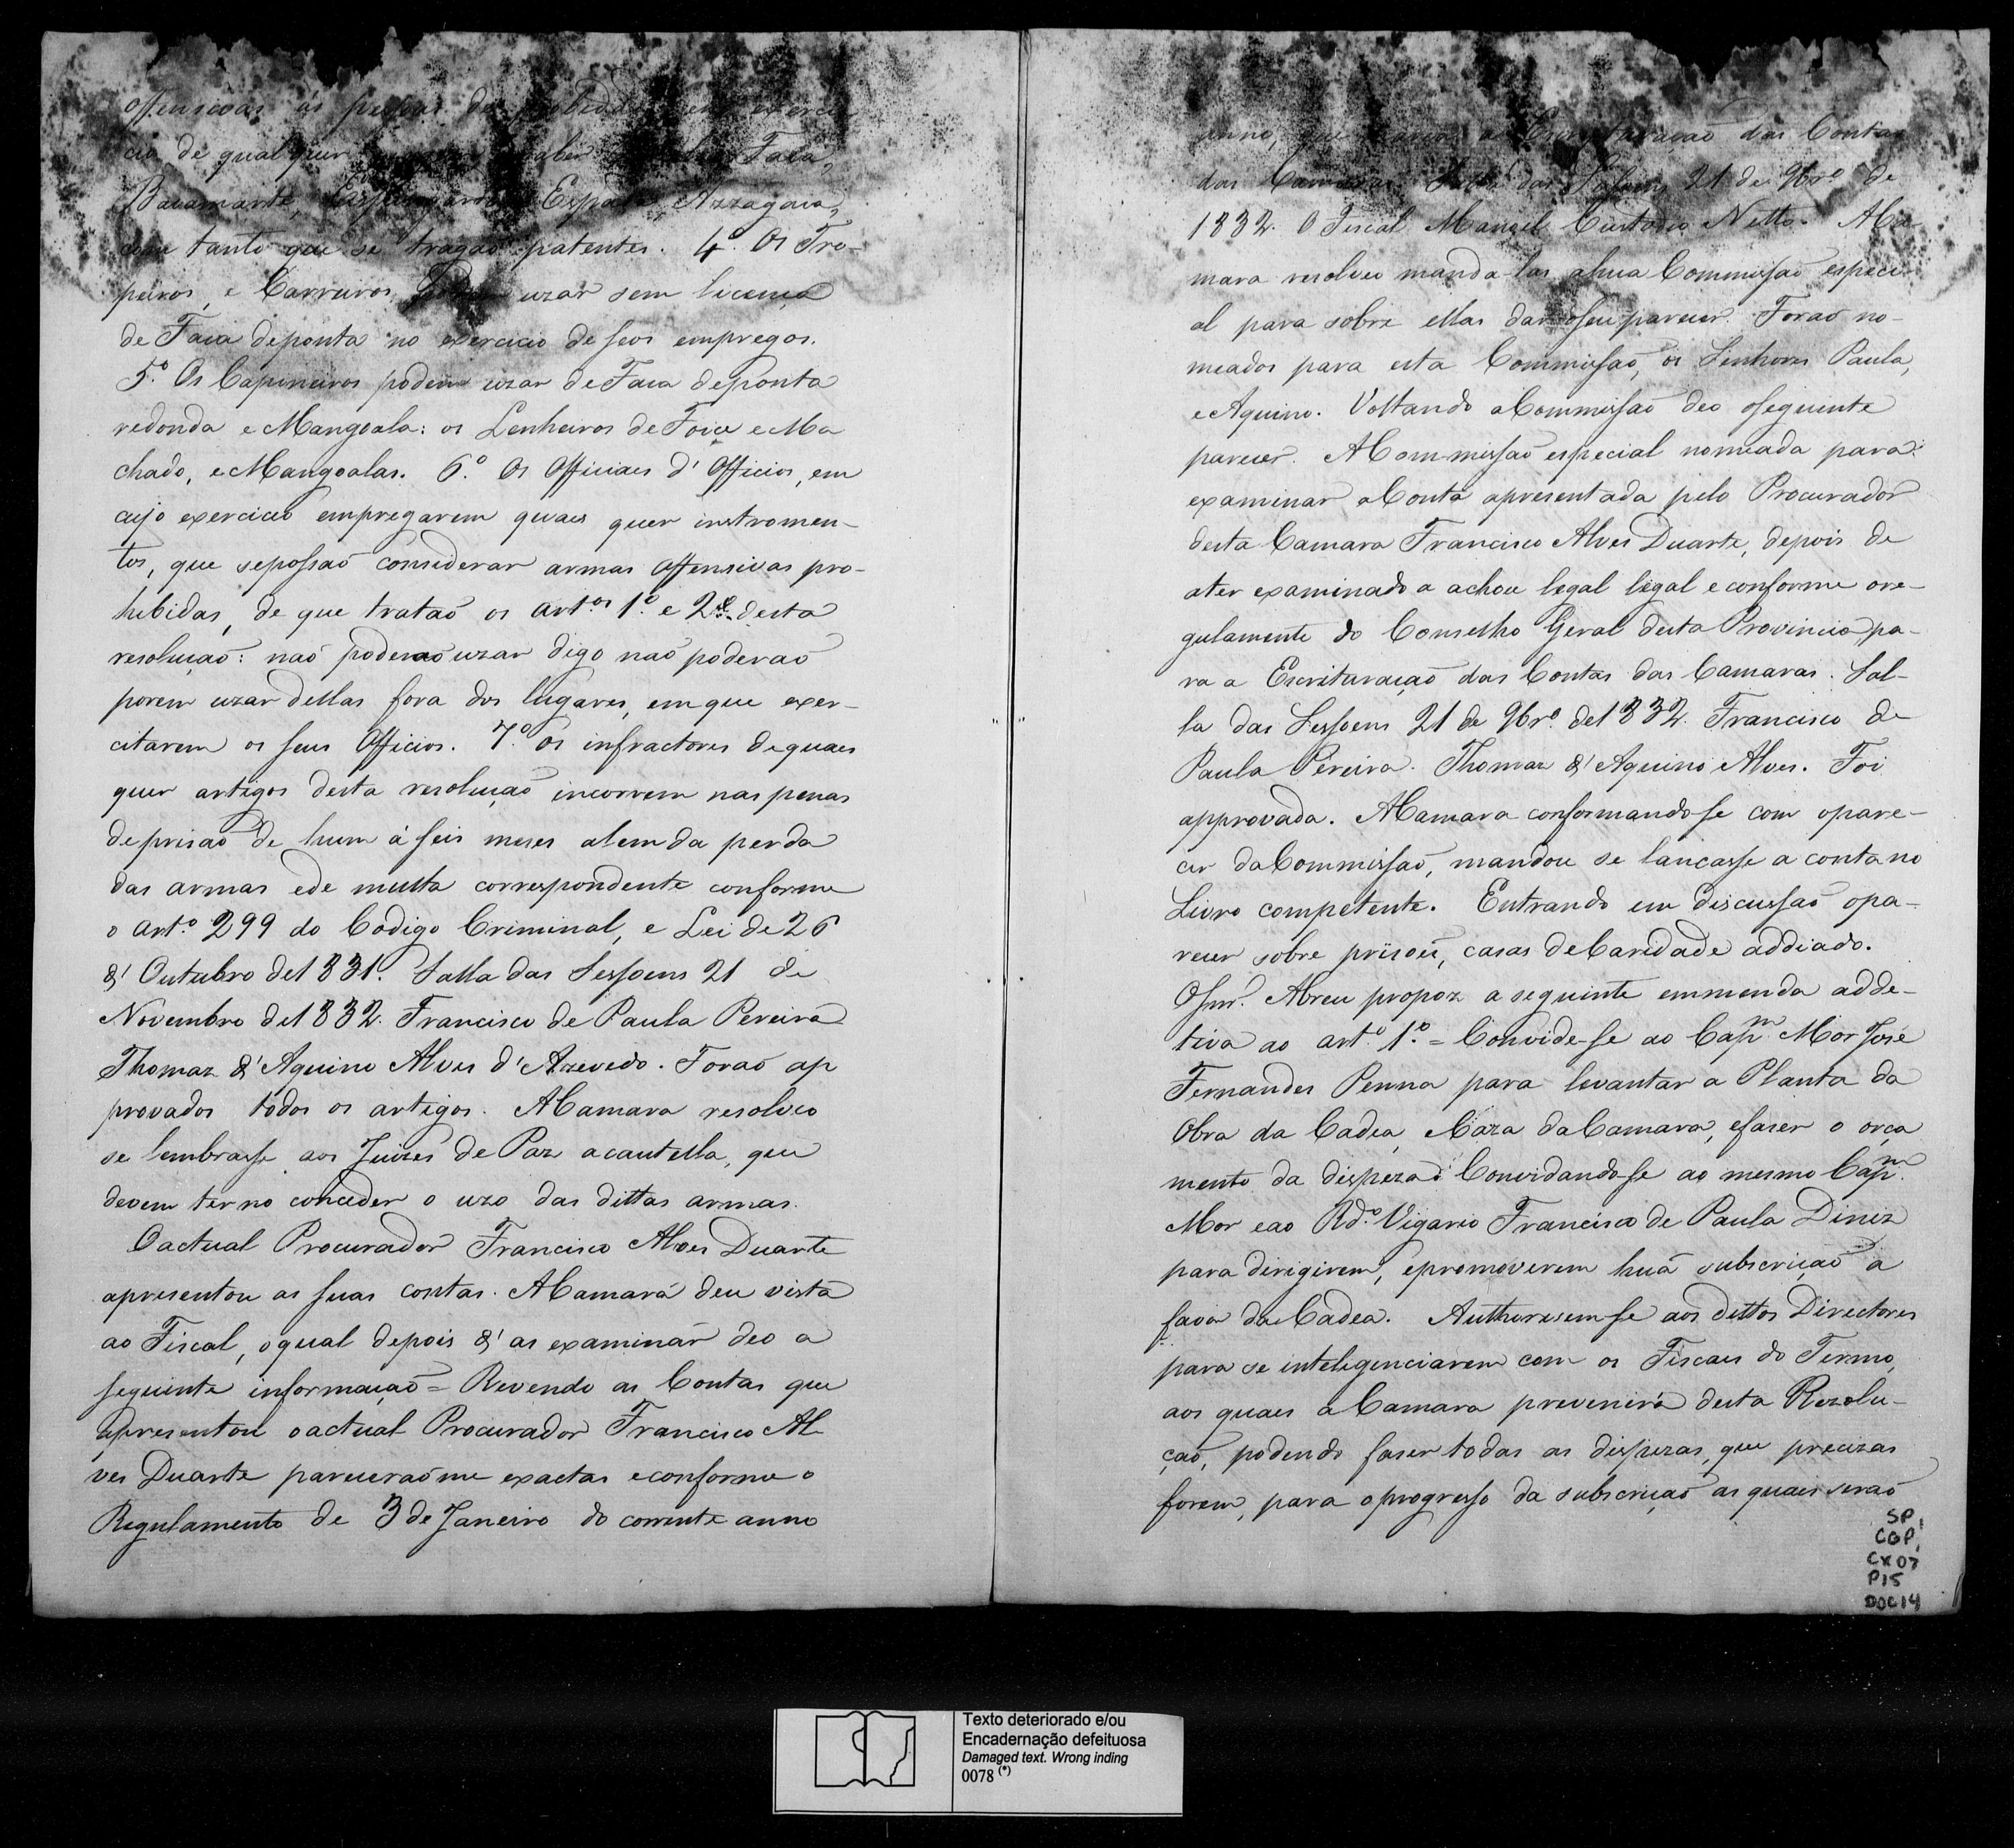 offensivas ás pessoas de
cio de qualquer Faca,
Bacamarte, Espingarda, Espada, Azzagaia,
com tanto que se tragaõ patentes. 4º. Os Tro-
peiros, e Carreiros, uzar sem licença
de Faca deponta no exercicio de seos empregos.
5º. Os Capineiros podem uzar de Faca deponta
redonda e Mangoala: os Lenheiros de Foice e Ma
chado, e Mangoalas. 6º. Os Officiaes d'Officios, em
cujo exercicio empregarem quaes quer instromen-
tos, que sepossaõ considerar armas offensivas pro-
hibidas, de que trataõ os artos 1º. e 2º. desta
resoluçaõ: naõ poderaõ uzar digo naõ poderaõ
porem uzar dellas fora dos lugares, em que exer-
citarem os seus Officios. 7º. Os infractores dequaes
quer artigos desta resoluçaõ incorrem nas penas
de prisaõ de hum á seis meses alem da perda
das armas ede multa correspondente conforme
o artº. 299 do Codigo Criminal, e Lei de 26
d'Outubro de1831. Salla das Sessoens 21 de
Novembro de1832. Francisco de Paula Pereira
Thomaz d'Aquino Alves d'Azevedo. Foraõ ap
provados todos os artigos. ACamara resolveo
se lembrasse aos Juizes de Paz acautella, que
devem ter no conceder o uzo das dittas armas.
Oactual Procurador Francisco Alves Duarte
apresentou as suas contas. ACamara deu vista
ao Fiscal, oqual depois d'as examinar deo a
seguinte informaçaõ = Revendo as Contas que
apresentou oactual Procurador Francisco Al
ves Duarte pareceraõme exactas econforme o
Regulamento de 3 de Janeiro do corrente anno
anno, que a Escrituraçaõ das Contas
das Camaras. das 21 de 9brº. de
1832. O Fiscal Manoel Custodio Netto. ACa
mara resolveo manda-las ahua Commissaõ especi-
al para sobre ellas dar oseu parecer. Foraõ no-
meados para esta Commissaõ, os Senhores Paula,
e Aquino. Voltando aCommissaõ deo oseguinte
parecer. ACommissaõ especial nomeada para
examinar aConta apresentada pelo Procurador
desta Camara Francisco Alves Duarte, depois de
ater examinado a achou legal legal e conforme ore-
gulamento do Conselho Geral desta Provincia pa-
ra a Escrituraçaõ das Contas das Camaras. Sal-
la das Sessoens 21 de 9brº. de1832. Francisco de
Paula Pereira. Thomaz d'Aquino Alves. Foi
approvada. ACamara conformandose com opare-
cer daCommissaõ, mandou se lancasse a conta no
Livro competente. Entrando em discussaõ opa-
recer sobre prisoẽs, casas deCaridade addiado.
OSnr. Abreu propoz a seguinte emmenda adde-
tiva ao artº. 1º. = Convide-se ao Capm. Mor José
Fernandes Penna para levantar a Planta da
Obra da Cadea, eCaza daCamara, efaser o orça
mento da dispeza: Convidando-se ao mesmo Capm.
Mor eao Rdº. Vigario Francisco de Paula Diniz
para dirigirem, epromoverem huã subscriçaõ a
favor da Cadea. Authoresem-se aos dittos Directores
para se inteligenciarem com os Fiscaes do Termo,
aos quaes a Camara prevenirá desta Rezolu-
çaõ, podendo faser todas as dispezas, que precizas
forem, para oprogresso da subscriçaõ as quais seraõ
SP,
CGP,
CX07
P15
DOC14
Texto deteriorado e/ou
Encadernação defeituosa
Damaged text. Wrong inding
0078 (*)